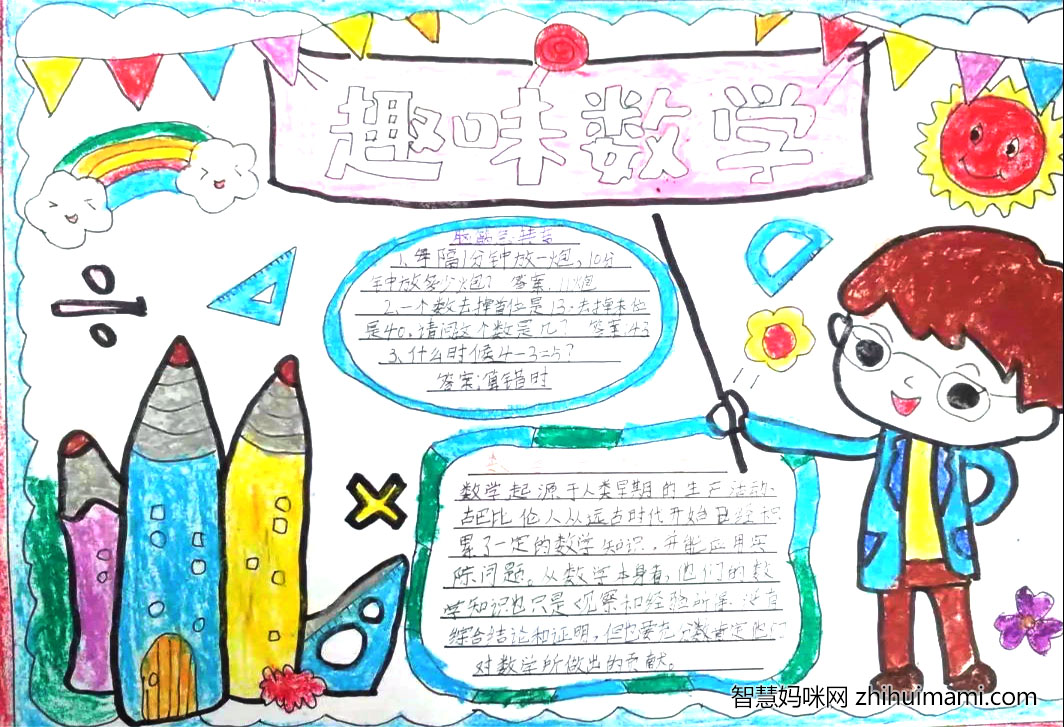 趣味数学
脑筋急转弯
1、每隔1分钟放一炮,10分
钟放多少炮? 答案:11炮
2.一个数去掉首位是13.去掉末位
是40.请问这个数是几? 答案:43
3、什么时候4-3=5?
答案:算错时
数学起源于人类早期的生产活动.
古巴比伦人从远古时代开始已经积
累了一定的数学知识,并能应用实
际问题。从数学本身看,他们的数
学知识也只是观察和经验所得.没有
综合结论和证明,但也要充分肯定他们
对数学所做出的贡献。
智慧妈咪网 zhihuimami.com